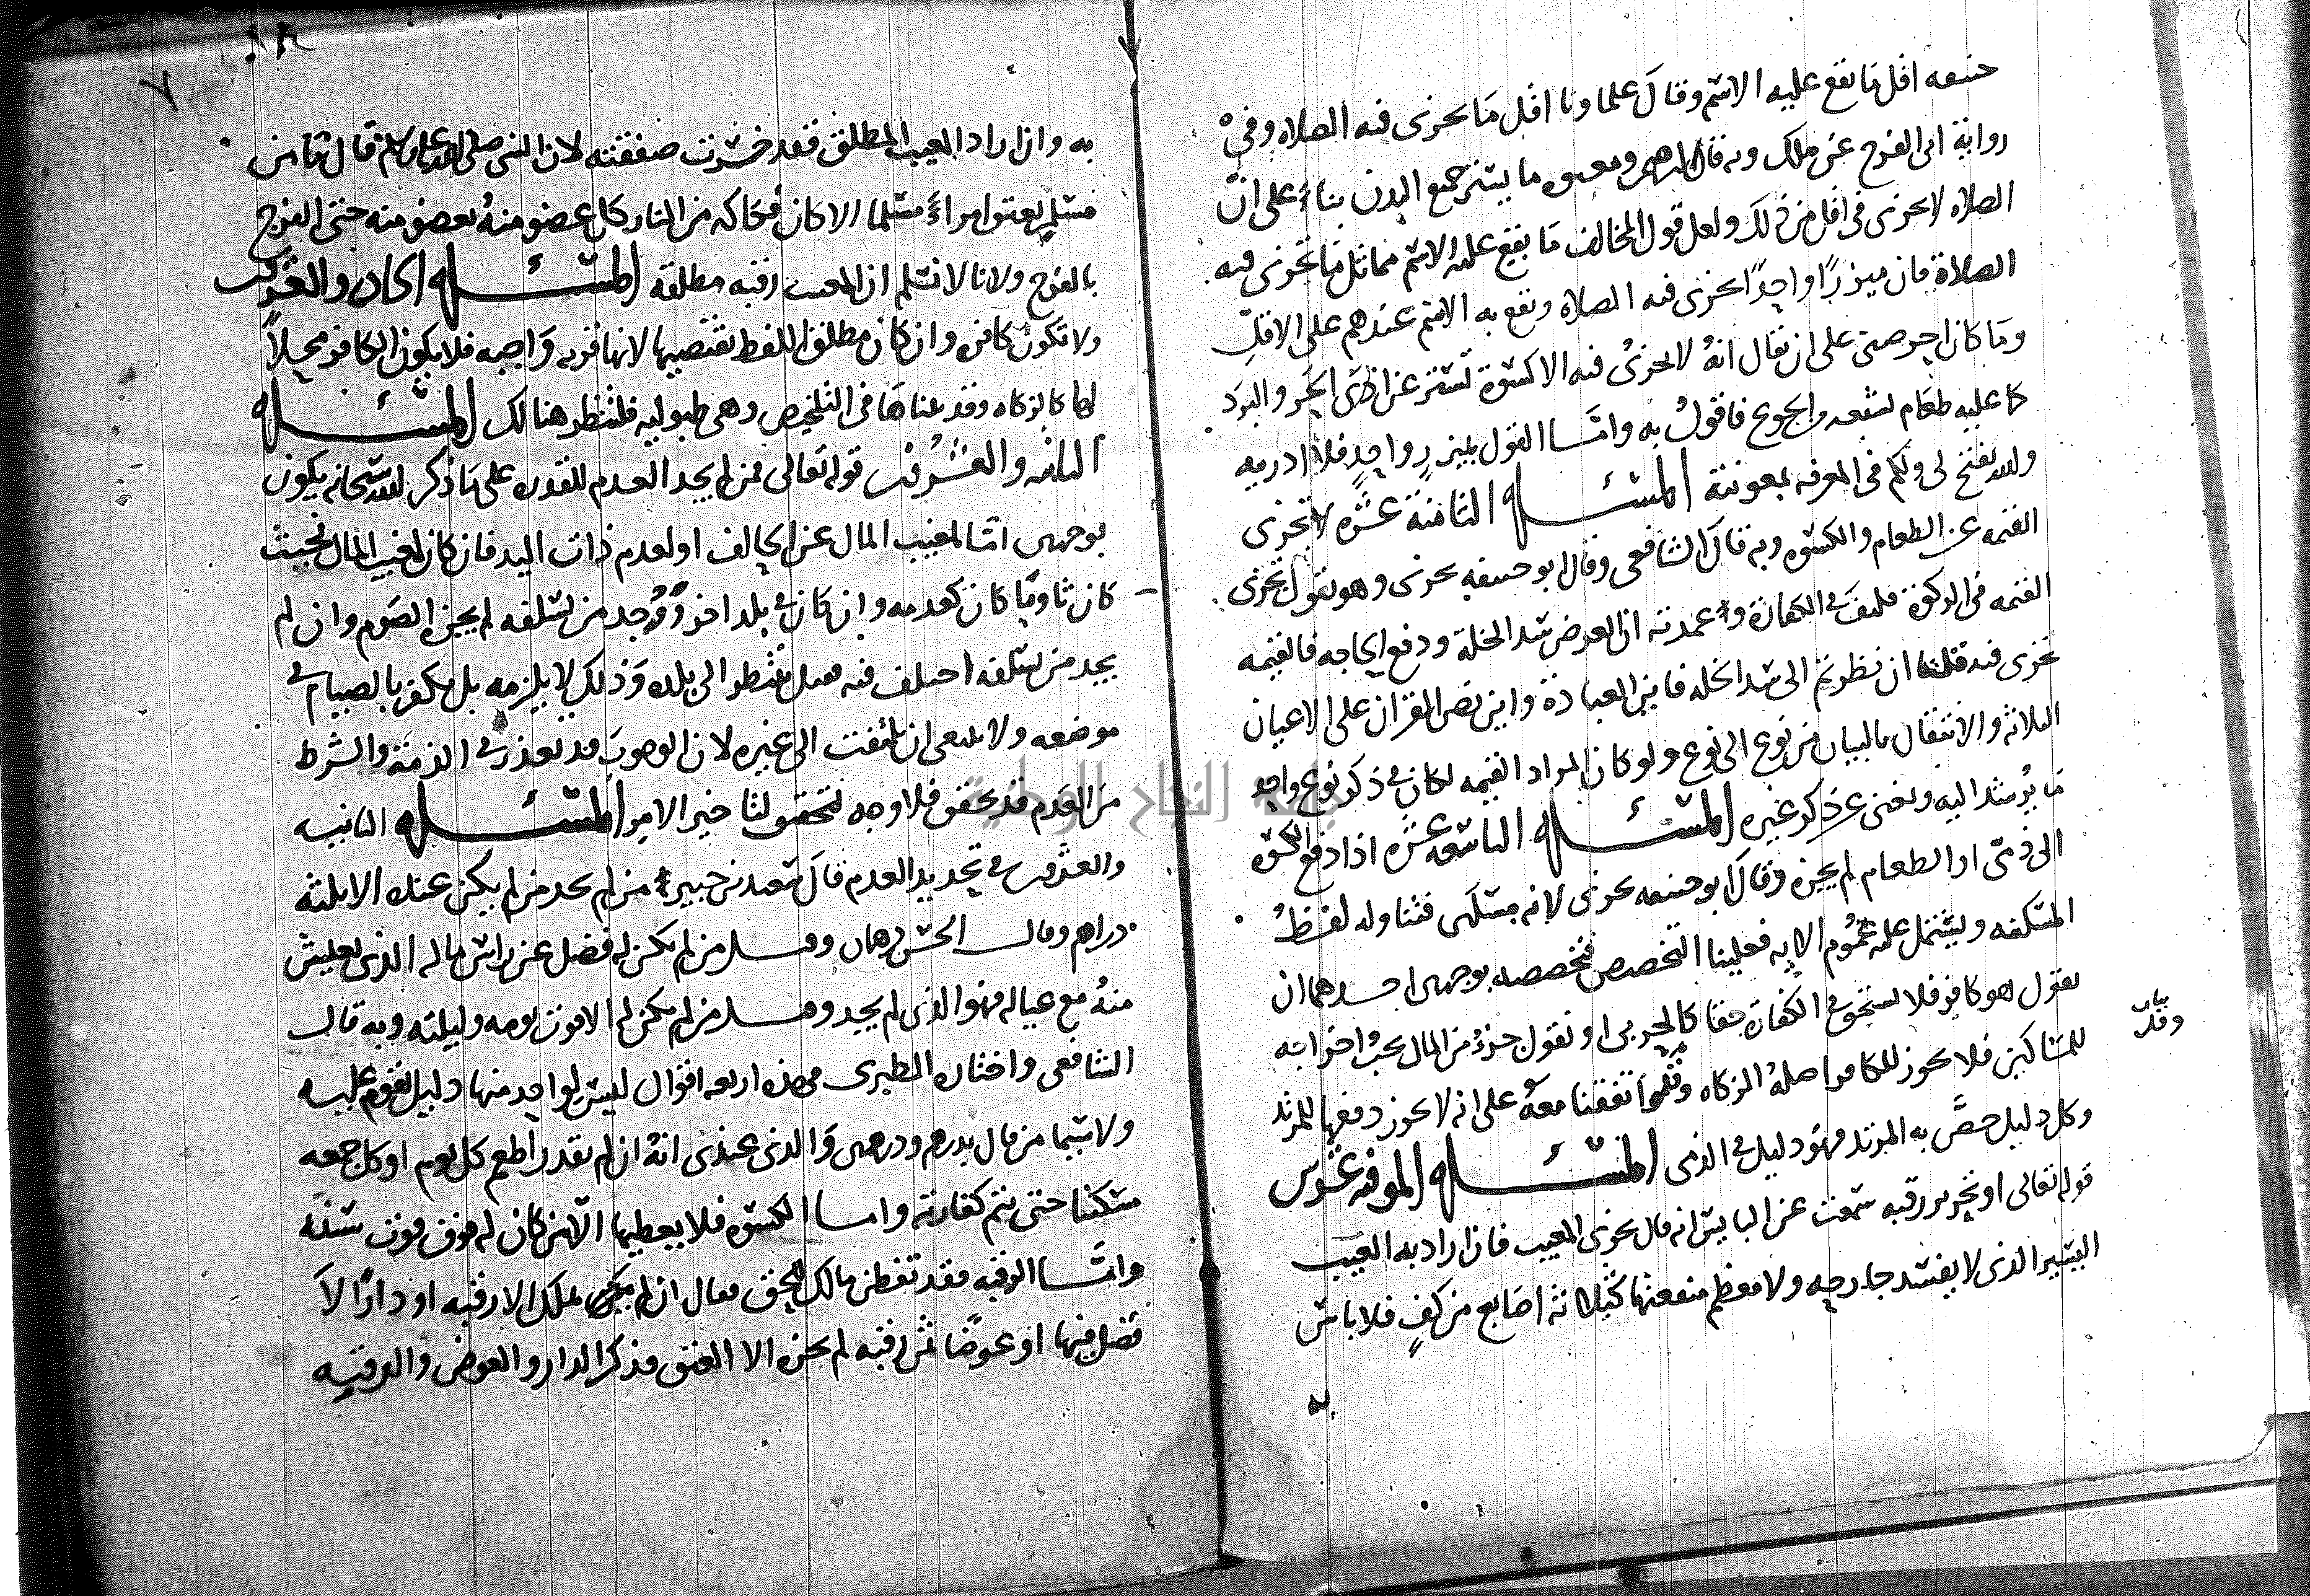 حنيفه اقل ما يقع عليه الاسم وقال علماونا اقل ما يجزى فيه الصلاه وفي
رواية ابى الفرج عن ملك وبه قال ابرهيم ومغيره ما يستر جميع البدن بناءً على انّ
الصلاه لا تجزى فى اقل من ذلك ولعل قول المخالف ما يقع عليه الاسم مماثل ما تجزى فيه
الصلاة فان ميزرًا واحدًا تجزى فيه الصلاه ويقع به الاسم عندهم على الاقل
وما كان احرصنى على ان يقال انه لا يجزئ فيه الا كسوة تستر عن اذى الحر والبرد
كما عليه طعام يشبعه من الجوع فاقول به وامّا القول بميزرٍ واحدٍ فلا ادريه
والله يفتح لى ولكم فى المعرفه بمعونته المسئله الثامنة عشره لا تجزى
القيمه عن الطعام والكسوه وبه قال الشافعى وقال ابو حنيفه تجزى وهو يقول تجزى
القيمه فى الزكوة فكيف فى الكفارة وعمدته ان العرض سد الخلة ودفع الحاجه فالقيمه
تجزى فيه قلنا ان نظرتم الى سد الخله فاين العبادة واين نص القران على الاعيان
الثلاثه والانتقال بالبيان من نوع الى نوع ولو كان المراد القيمه لكان فى ذكر نوع واحد
ما يرشد اليه ويغنى عن ذكر غيره المسئله التاسعه عشره اذا دفع الكسوه
الى ذمّى او الطعام لم يجزه وقال ابو حنيفه يجزى لانه مسكين فتناوله لفظ
المسكنه ويشتمل عليه عموم الايه فعلينا التخصيص فنخصصه بوجهين احدهما ان
نقول هو كافر فلا يستحق فى الكفارة حقا كالحربى او نقول جزؤ من المال يجب اخراجه
للمساكين فلا يجوز للكافر اصله الزكاه وقد اتفقنا معه على انه لا يجوز دفعها للمرتد
وكل دليل خصّ به المرتد فهو دليل فى الذمى المسئله الموفيه عشرين
قوله تعالى او تحرير رقبه سمعت عن البايس انه قال يجزى المعيب فان اراد به العيب
اليسير الذى لا يفسد جارحه ولا معظم منفعتها كثلاثة اصابع من كفٍ فلا باس
به
به وان اراد المعيب المطلق فقد خسرت صفقته لان النبى صلى الله عليه وسلم قال ما من
مسلمٍ يعتق امراءً مسلما الا كان فكاكه من النار كل عضو منهُ بعضو منه حتى الفرج
بالفرج ولانا لا نسلم ان المعيب رقبه مطلقه المسئله الحاديه والعشرون
ولا تكون كافره وان كان مطلق اللفظ يقتضيها لانها قربه واجبه فلا يكون الكافر محلاً
لها كالزكاه وقد بيناها فى التلخيص وهى طبوليه فلتنظر هنالك المسئله
الثانيه والعشرون قوله تعالى فمن لم يجد العدم للقدره على ما ذكر الله سبحانه يكون
بوجهين امّا لمغيب المال عن الحالف او لعدم ذات اليد فان كان لمغيب المال بحيث
كان ثاويًا كان كعدمه وان كان فى بلد اخر ووُجد من يسلفه لم يجزه الصوم وان لم
يجد من يسلفه اختلف فيه فقيل ينتظر الى بلده وذلك لا يلزمه بل يكفر بالصيام فى
موضعه ولا ينبغى ان يلتفت الى غيره لان الوجوب قد تعذر فى الذمة والشرط
من العدم قد تحقق فلا وجه لتحقق لنا خير الامر المسئله الثانيه
والعشرون فى تحديد العدم قال سعيد بن جبير من لم يجد من لم يكن عنده الا ثلثه
دراهم وقال الحسن درهمان وقيل من لم يكن له فضل عن راس ماله الذى يعيش
منهُ مع عياله فهو الذى لم يجد وقيل من لم يكن له الا قوت يومه وليلته وبه قال
الشافعى واختاره الطبرى فهذه اربعه اقوال ليس لواحد منها دليل يقوم عليه
ولا سيما من قال بدرهم ودرهمين والذى عندى انهُ ان لم يقدر اطعم كل يوم او كل جمعه
مسكينا حتى يتم كفارته وامّا الكسوه فلا يعطيها الّا من كان له فوق قوت سنه
وامّا الرقبه فقد تفطن مالك للحق فقال ان لم يكن يملك الا رقبه او دارًا لا
فضل فيها او عرضًا ثمن رقبه لم يجزه الا العتق فذكر الدار والعرض والرقبه